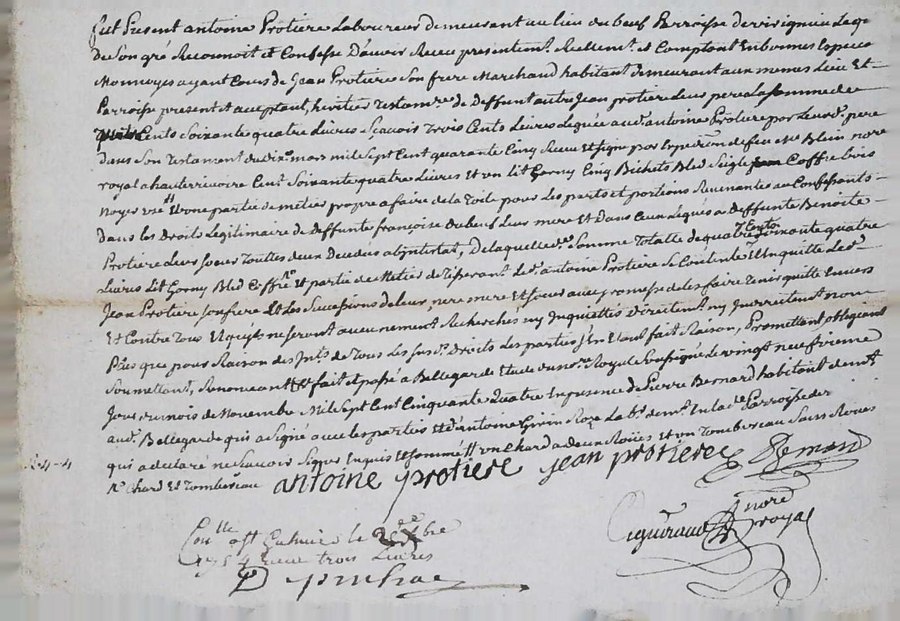 fut Present antoine Protiere Laboureur Demeurant au lieu du beuf Parroisse de virignieu Leqe
De son gré Reconnoit et Confesse D'avoir Receu presentemt Reellemt et Comptant En bonnes Especes
Monnoyes ayant Cours de Jean Protiere son frere Marchand habitant demeurant aux memes Lieu Et
Parroisse present et acceptant, heritier Testamre de Deffunt autre Jean protiere Leur pere La somme de
Cents soixante quatre Livres Scavoir Trois Cents Livres Leguée aud. antoine Protiere par Led. pere
dans son Testament du mars mil sept Cent quarante Cinq Receu et signé par Expedition de feu Me Blein nore
royal a hauterivoire Cent Soixante quatre Livres et un Lit Garny Cinq Bichets Bled Seigle Coffre bois
Noyer et une partie de métier propre a faire de la Toile pour Les parts et portions Revenantes au Confessant
dans les Droits Legitimaire de deffunte françoise Dubeuf Leur mere Et dans Ceux Légués a deffunte Benoite
Protiere Leur soeur Touttes deux Decedées abintestat, De laquelle de. Somme Totalle de quatre Cents soixante quatre
Livres Lit Garny Bled Coffre et partie de Metier de Tisserant Led. antoine Protiere se Contente Et En quitte Led.
Jean Protiere son frere Et Les Successions de Leur pere mere Et soeur avec promesse de Les faire Tenir quitte Envers
Et Contre Tous Et qu'ils ne seront aucunement Recherchés ny Inquiettés directemt ny Indirectemt non
Plus que pour Raison des Ints de Tous Les susd. Droits Les parties s'en Etant fait Raison, Promettant obligeant
Soumettant, Renonceant Et fait et passé a Bellegarde Etude du nore Royal Soussigné Le vingt neufvieme
Jour du mois de Novembre Mil sept Cent Cinquante Quatre En presence de Pierre Bernard habitant demt
aud. Bellegarde qui a Signé avec Les parties Et d'antoine Labr demt En la de Parroisse de
qui a declaré ne Scavoir Signer Enquis Et Sommé un Chard a deux Roües Et un Tombereau Sans Roües
Chard Et Tombereau antoine protiere jean protiere Bernard
Coulle off Ezalmier le Xbre
1754 receu trois Livres
nore
royal